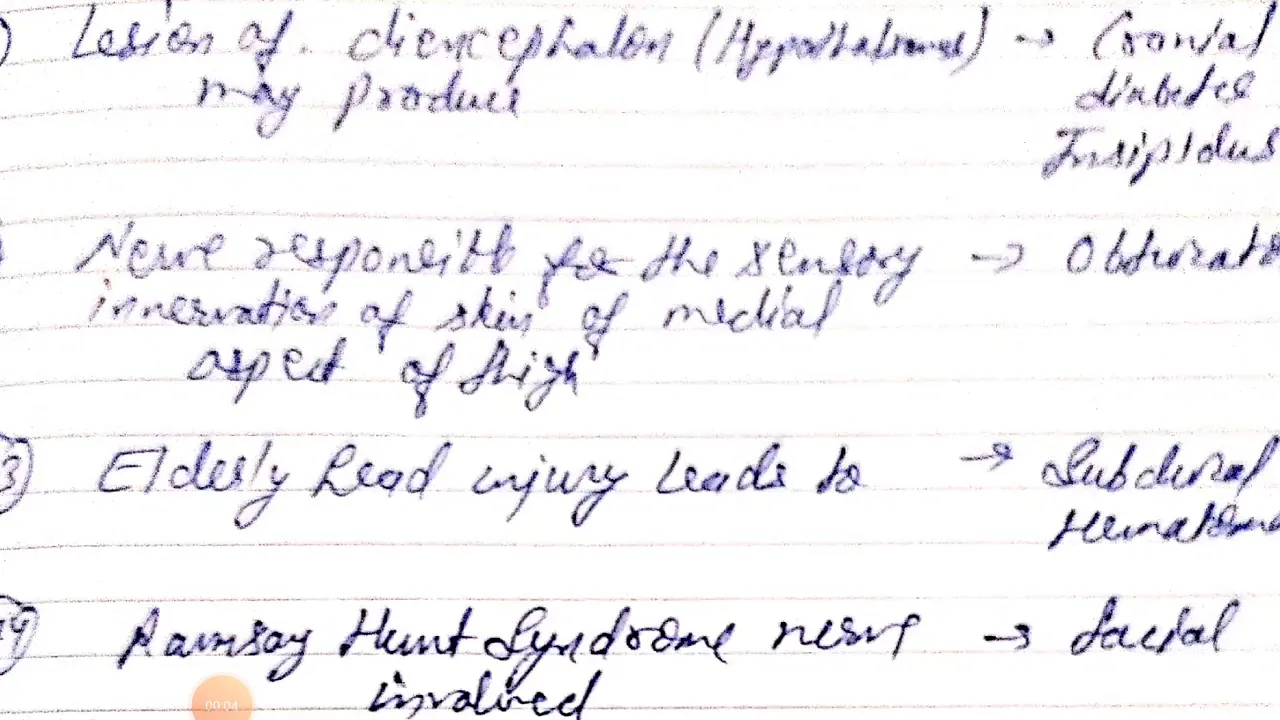 ) Lesion of. diencephalon (Hypothalamus) → Cranial
may produce diabetes
Insipidus
Nerve responsible for the sensory → Obturato
innervation of skin of medial
aspect of thigh
3) Elderly head injury leads to → Subdural
Hematoma
14) Ramsay Hunt Syndrome nerve → facial
involved
00:04